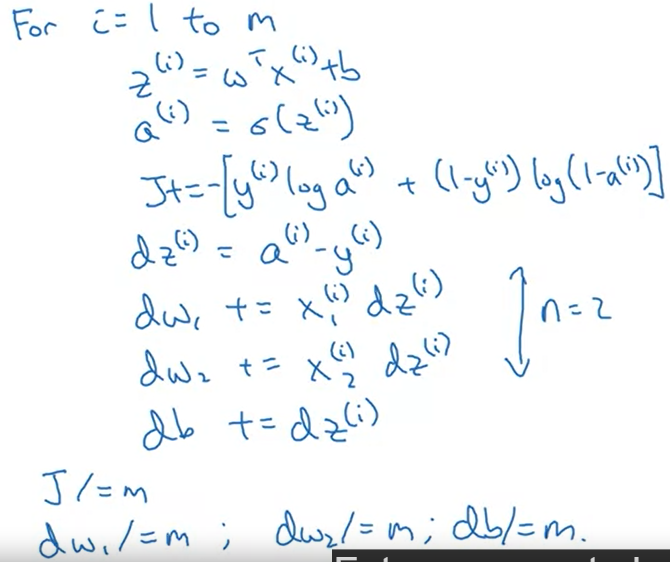 For i = 1 to m
z^(i) = ω^T x^(i) + b
a^(i) = σ(z^(i))
J += -[y^(i) log a^(i) + (1-y^(i)) log(1-a^(i))]
dz^(i) = a^(i) - y^(i)
dω₁ += x₁^(i) dz^(i)
dω₂ += x₂^(i) dz^(i)
n=2
db += dz^(i)
J /= m
dω₁ /= m ; dω₂ /= m ; db /= m.